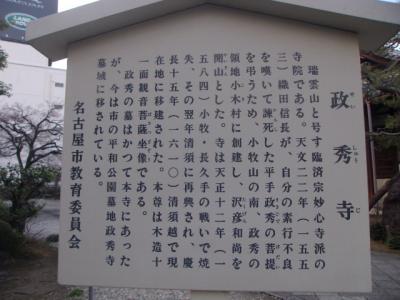 LAND ROVER
政秀寺
せい しゅう じ
瑞雲山と号す臨済宗妙心寺派の
寺院である。天文二二年（一五五
三）織田信長が、自分の素行不良
を嘆いて諫死した平手政秀の菩提
を弔うため、小牧山の南、政秀の
領地小木村に創建し、沢彦和尚を
開山とした。寺は天正十二年（一
五八四）小牧・長久手の戦いで焼
失、その翌年清須に再興され、慶
長十五年（一六一〇）清須越で現
在地に移建された。本尊は木造十
一面観音菩薩坐像である。
政秀の墓はかつて本寺にあった
が、今は市の平和公園墓地政秀寺
墓域に移されている。
名古屋市教育委員会